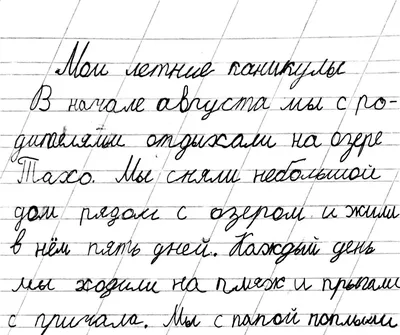 Мои летние каникулы
В начале августа мы с ро-
дителями отдыхали на озере
Тахо. Мы сняли небольшой
дом рядом с озером и жили
в нём пять дней. Каждый день
мы ходили на пляж и прыгали
с причала. Мы с папой поплыли